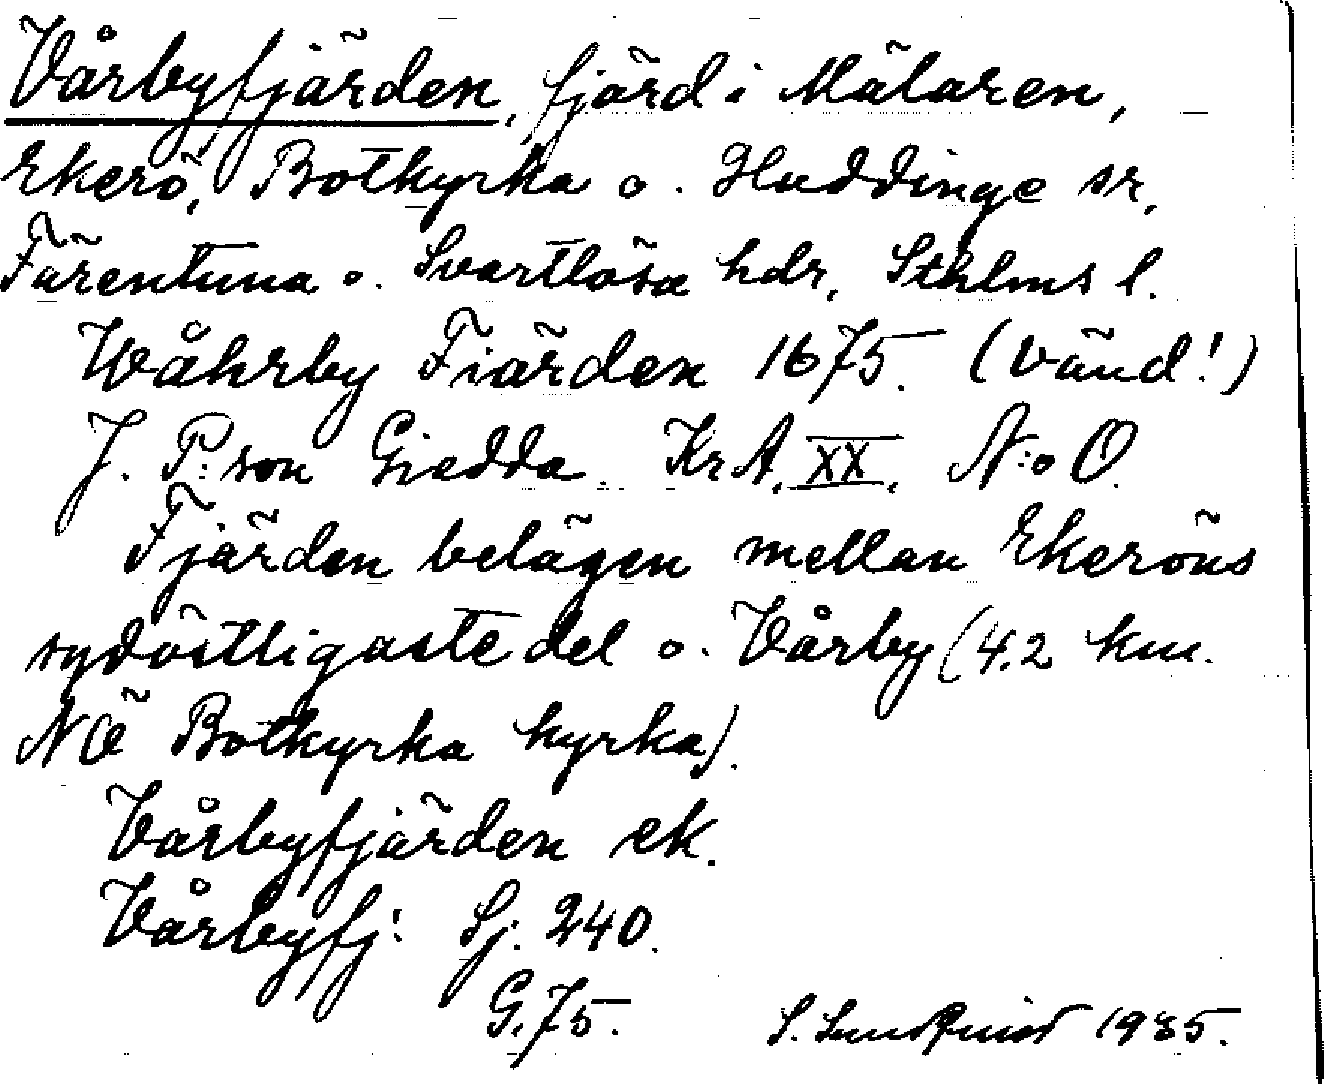 Vårbyfjärden, fjärd i Mälaren,
Ekerö, Botkyrka o. Huddinge sr,
Färentuna o. Svartlösa hdr, Sthlms l.
Wåhrby Fiärden 1675. (vänd!)
J. P:son Giedda. KrA, XX, N:o O.
Fjärden belägen mellan Ekeröns
sydöstligaste del o. Vårby (4,2 km.
NÖ Botkyrka kyrka).
Vårbyfjärden ek.
Vårbyfj: Sj. 240.
G. 75.
S. Lundqvist 1935.